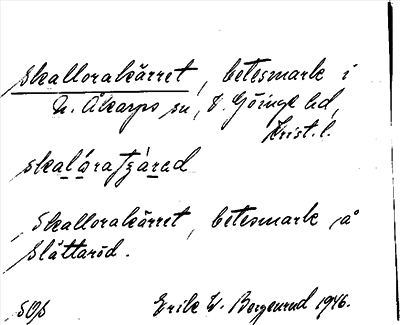 Skallorakärret, betesmark i
N. Åkarps sn, V. Göinge hd,
Krist. l.
skalóratʒárad
Skallorakärret, betesmark å
Slättaröd.
SOS Erik W. Bergenrud 1946.